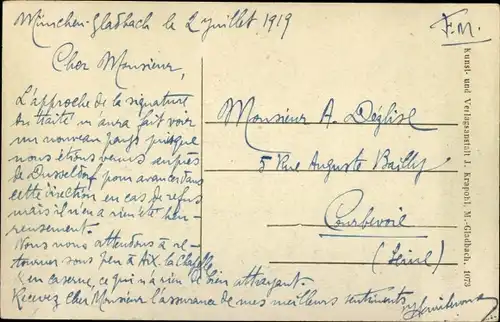 München-Gladbach le 2 juillet 1919
F.M.
Cher Monsieur,
L'approche de la signature
du traité m'aura fait voir
un nouveau pays puisque
nous étions venus auprès
de Dusseldorf pour avancer dans
cette direction en cas de refus
mais il n'en a rien été heu-
reusement.
Nous nous attendons à re-
tourner sous peu à Aix. la Chapelle
en caserne, ce qui n'a rien de bien attrayant.
Recevez cher Monsieur l'assurance de mes meilleurs sentiments
Monsieur A. Déglise
5 Rue Auguste Bailly
Courbevoie
(Seine)
Kunst- und Verlagsanstalt J. Krapohl, M.-Gladbach. 1073